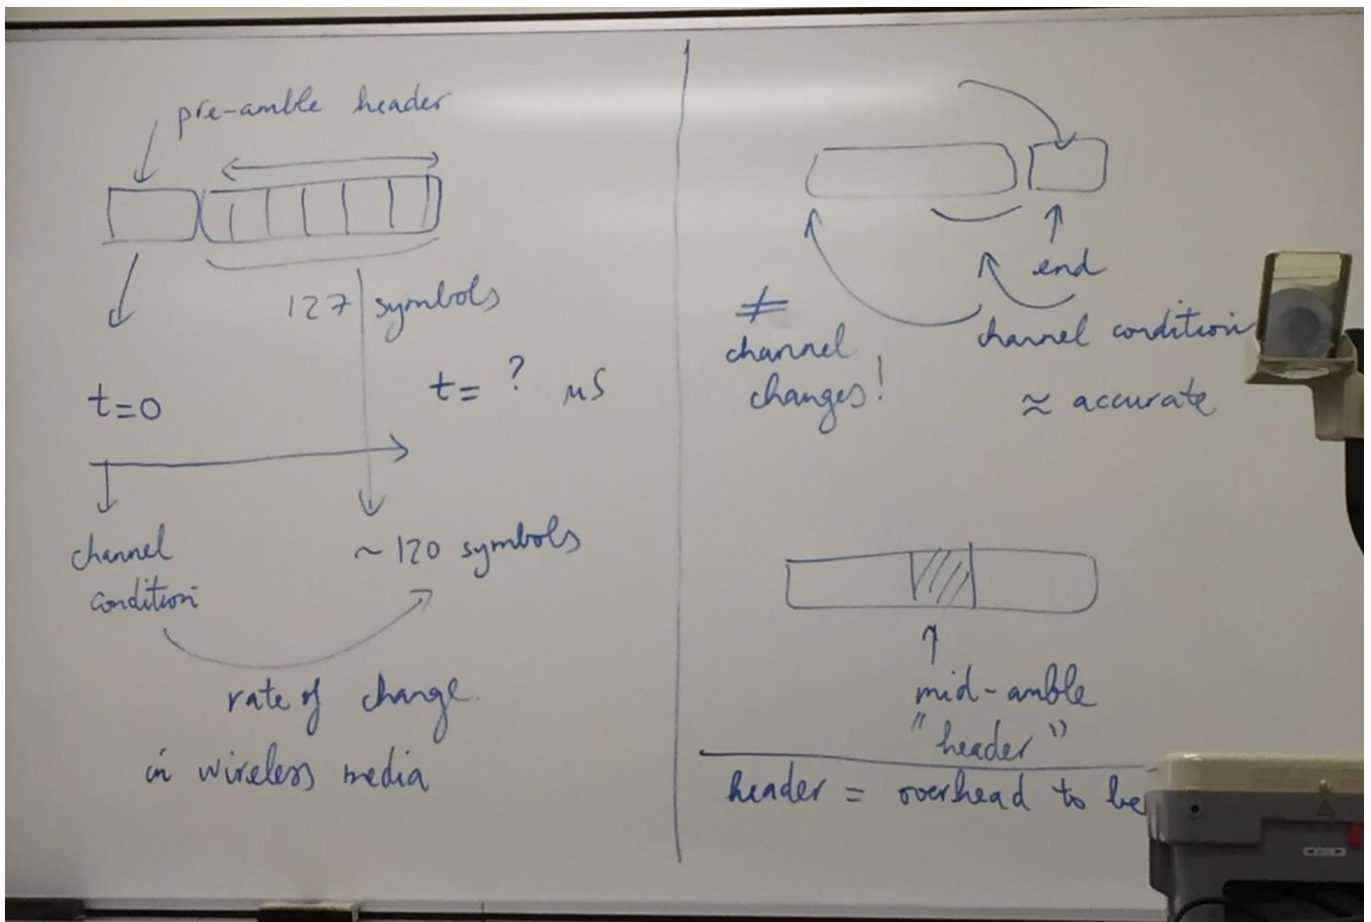 pre-amble header
127 symbols
t=0
t= ? µs
channel
condition
~ 120 symbols
rate of change
in wireless media
end
≠
channel
changes!
channel condition
≈ accurate
mid-amble
"header"
header = overhead to be